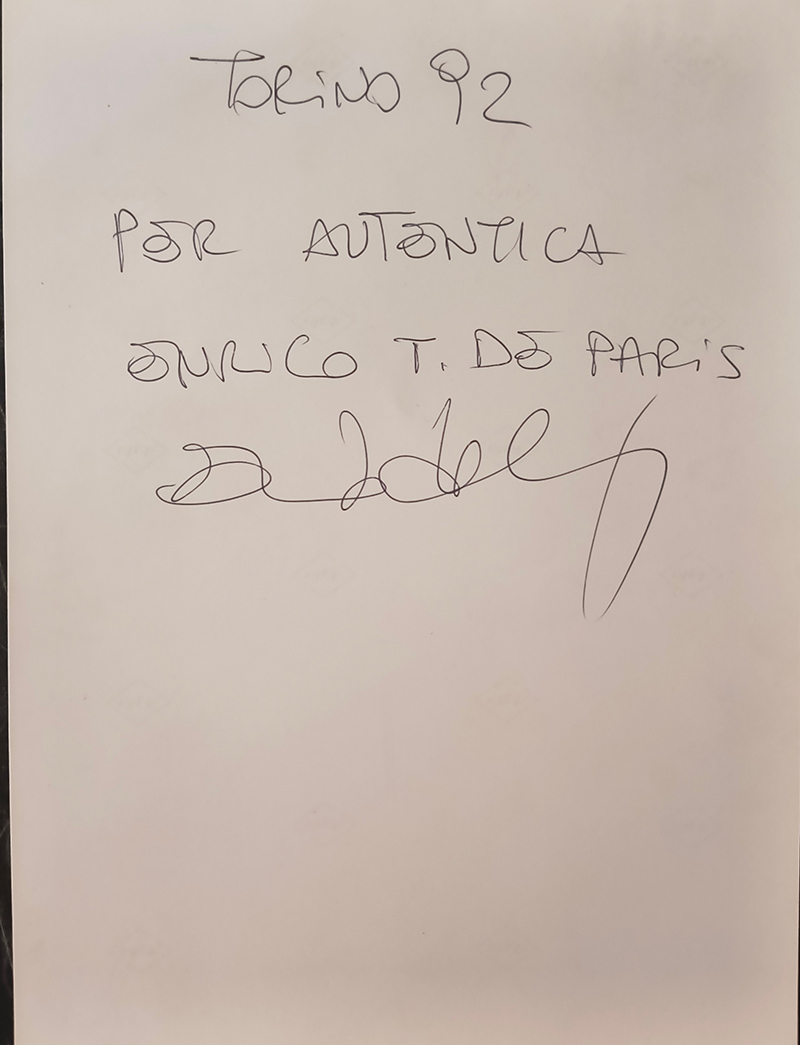 TORINO 92
PER AUTENTICA
ENRICO T. DE PARIS